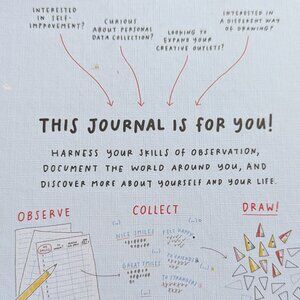 INTERESTED
IN SELF-
IMPROVEMENT?
CURIOUS
ABOUT PERSONAL
DATA COLLECTION?
LOOKING TO
EXPAND YOUR
CREATIVE OUTLETS?
INTERESTED IN
A DIFFERENT WAY
OF DRAWING?
THIS JOURNAL IS FOR YOU!
HARNESS YOUR SKILLS OF OBSERVATION,
DOCUMENT THE WORLD AROUND YOU, AND
DISCOVER MORE ABOUT YOURSELF AND YOUR LIFE.
OBSERVE
COLLECT
DRAW!
NICE SMILES
FELT HAPPY
GREAT SMILES
TO FRIENDS
TO STRANGERS